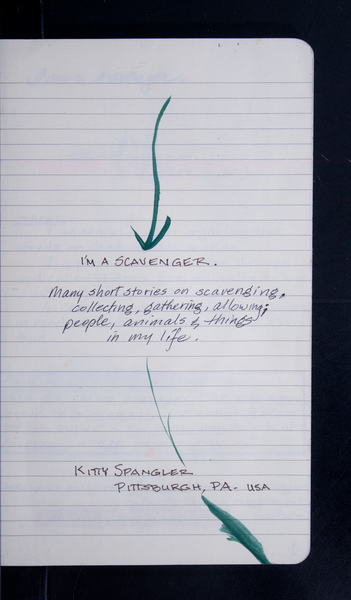 I'M A SCAVENGER.
Many short stories on scavenging,
collecting, gathering, allowing;
people, animals & things
in my life.
KITTY SPANGLER
PITTSBURGH, PA. USA